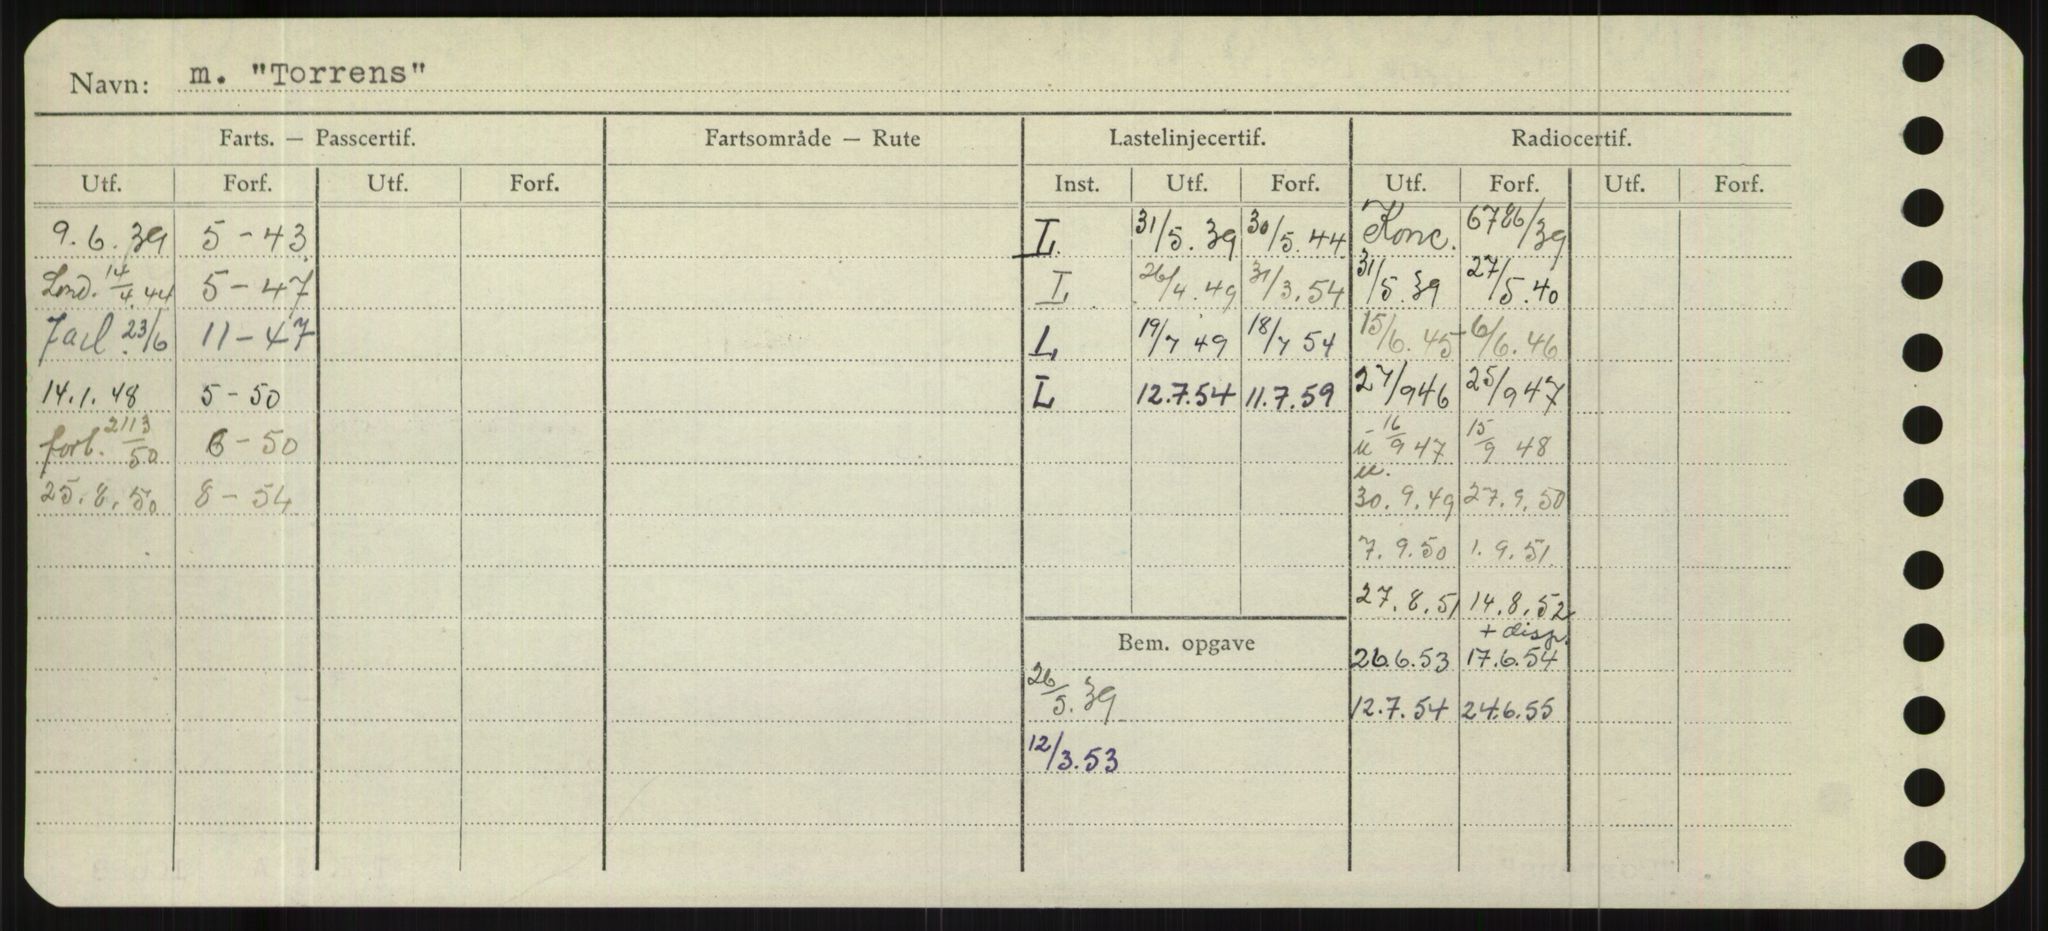 Navn: m. "Torrens"
Farts. — Passcertif. Fartsområde — Rute Lastelinjecertif. Radiocertif.
Utf. Forf. Utf. Forf. Inst. Utf. Forf. Utf. Forf. Utf. Forf.
9.6.39 5-43 L 31/5.39 30/5.44 Konc. 6786/39
Lond. 14/4.44 5-47 L 26/4.49 31/3.54 31/5.39 27/5.40
23/6 11-47 L 19/7 49 18/7 54 15/6.45 6/6.46
14.1.48 5-50 L 12.7.54 11.7.59 27/9 46 25/9 47
forl. 21/3 50 6-50 16/9 47 15/9 48
25.8.50 8-54 30.9.49 27.9.50
7.9.50 1.9.51
27.8.51 14.8.52
+ disp.
Bem. opgave 26.6.53 17.6.54
26/5.39 12.7.54 24.6.55
12/3.53